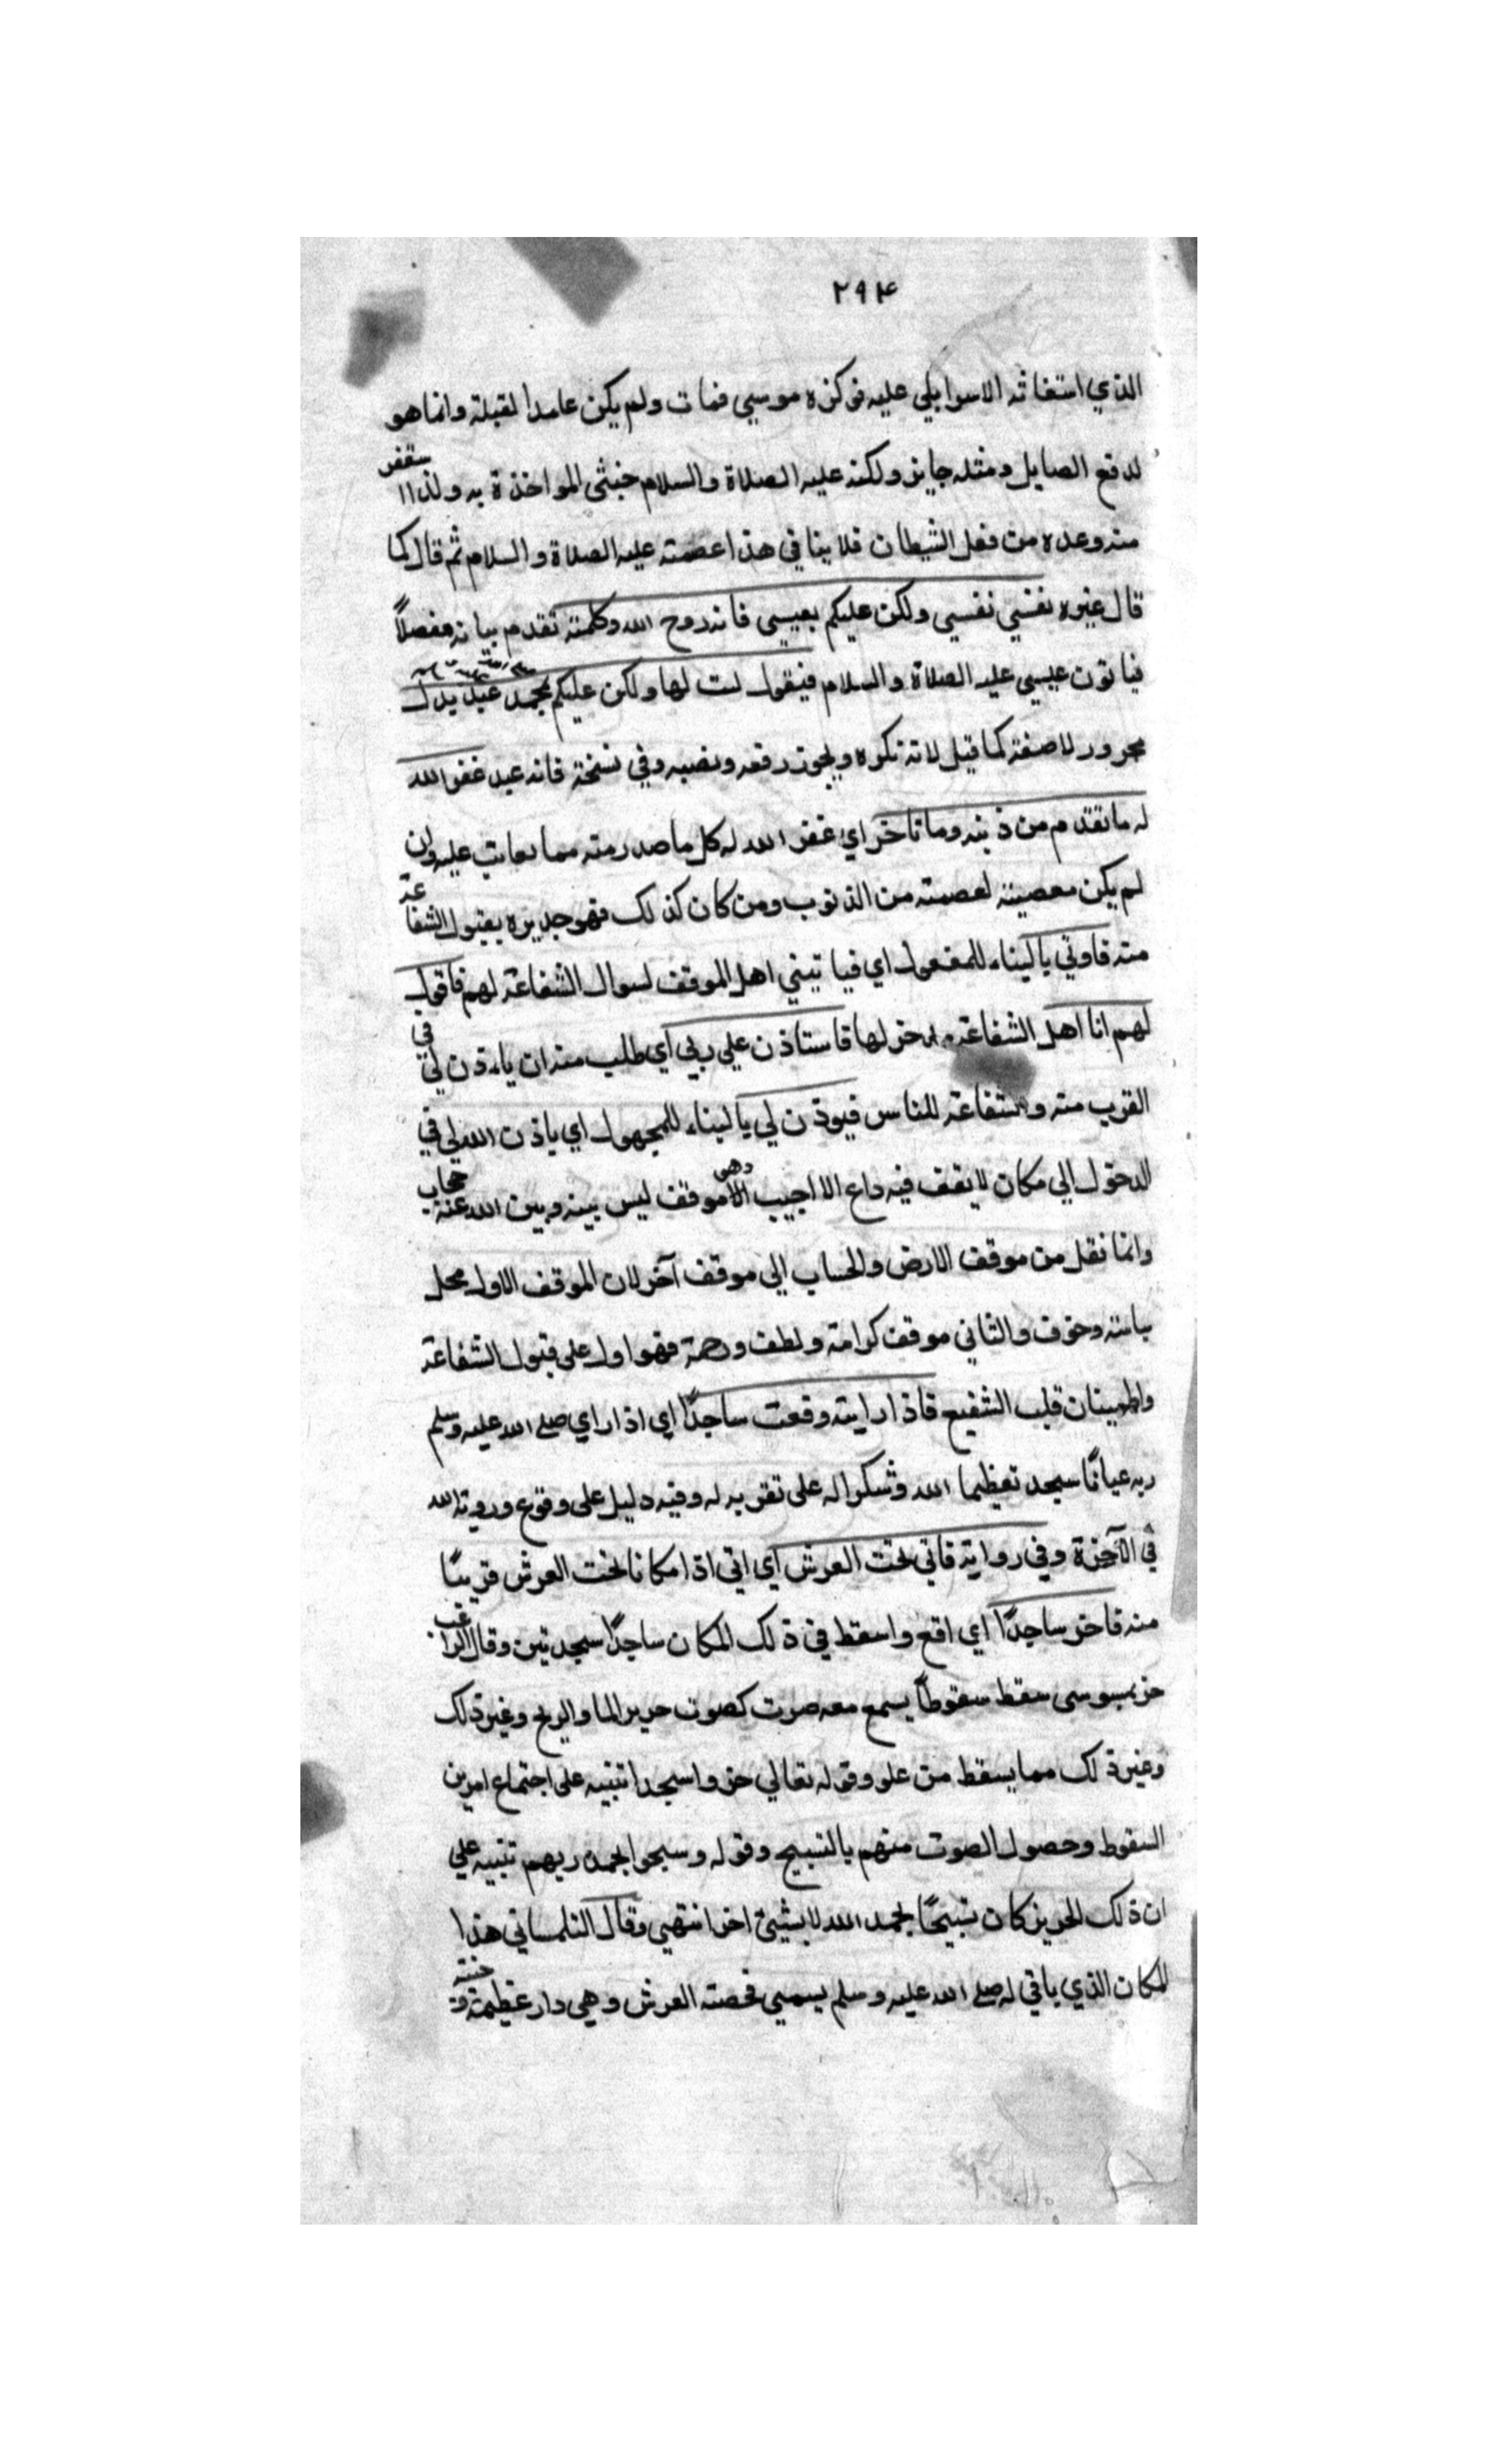 ٢٩٤
الذي استغاثه الاسرايلي عليه فوكزه موسي فمات ولم يكن عامدا لقتله وانما هو
لدفع الصايل ومثله جايز ولكنه عليه الصلاة والسلام خشي المواخذة به ولذا استغفر
منه وعده من فعل الشيطان فلا ينافي هذا عصمته عليه الصلاة والسلام ثم قال كما
قال غيره نفسي نفسي ولكن عليكم بعيسي فانه روح الله وكلمته تقدم بيانه مفصلاً
فياتون عيسي عليه الصلاة والسلام فيقول لست لها ولكن عليكم بمحمد عبد بدل
مجرور لا صفة كما قيل لانه نكره ويجوز رفعه ونصبه وفي نسخة فانه عبد غفر الله
له ما تقدم من ذنبه وما تاخر اي غفر الله له كل ما صدر منه مما يعاتب عليه وان
لم يكن معصية لعصمته من الذنوب ومن كان كذلك فهو جدير بقبول الشفاعة
منه فاوتي بالبناء للمفعول اي فياتيني اهل الموقف لسوال الشفاعة لهم فاقول
لهم انا اهل الشفاعة لها فاستاذن علي ربي اي طلب منه ان ياذن لي في
القرب منه والشفاعة للناس فيوذن لي بالبناء للمجهول اي ياذن الله لي في
الدخول الي مكان لا يقف فيه داع الا اجيب وهي الاموقف ليس بينه وبين الله عنه حجاب
وانما نقل من موقف الارض والحساب الي موقف آخر لان الموقف الاول محل
سياسة وخوف والثاني موقف كرامة ولطف ورحمة فهو اول على قبول الشفاعة
واطمينان قلب الشفيع فاذا رايته وقعت ساجدًا اي اذا راي صلى الله عليه وسلم
ربه عيانًا سجد تعظيما الله وشكرا له على تقربه له وفيه دليل على وقوع ورويته الله
في الآخرة وفي رواية فاتي تحت العرش اي اتي اذا مكانا تحت العرش قريبًا
منه فاخر ساجدًا اي اقع واسقط في ذلك المكان ساجدًا سجدتين وقال الراغب
خر سقط سقوطاً يسمع معه صوت كصوت خرير الما والريح وغير ذلك
وغير ذلك مما يسقط من علو وقوله تعالي خروا سجدا تنبيه على اجتماع امرين
السقوط وحصول الصوت منهم بالتسبيح وقوله وسبحوا بحمد ربهم تنبيه علي
ان ذلك الخرير كان تسبيحًا بحمد الله لا بشيئ اخر انتهي وقال التلمساني هذا
المكان الذي ياتي له صلى الله عليه وسلم يسمي فحصة العرش وهي دار عظيمة